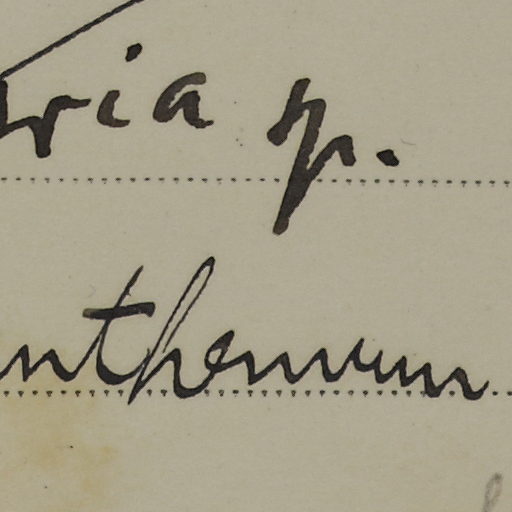 ria sp.
nthemum